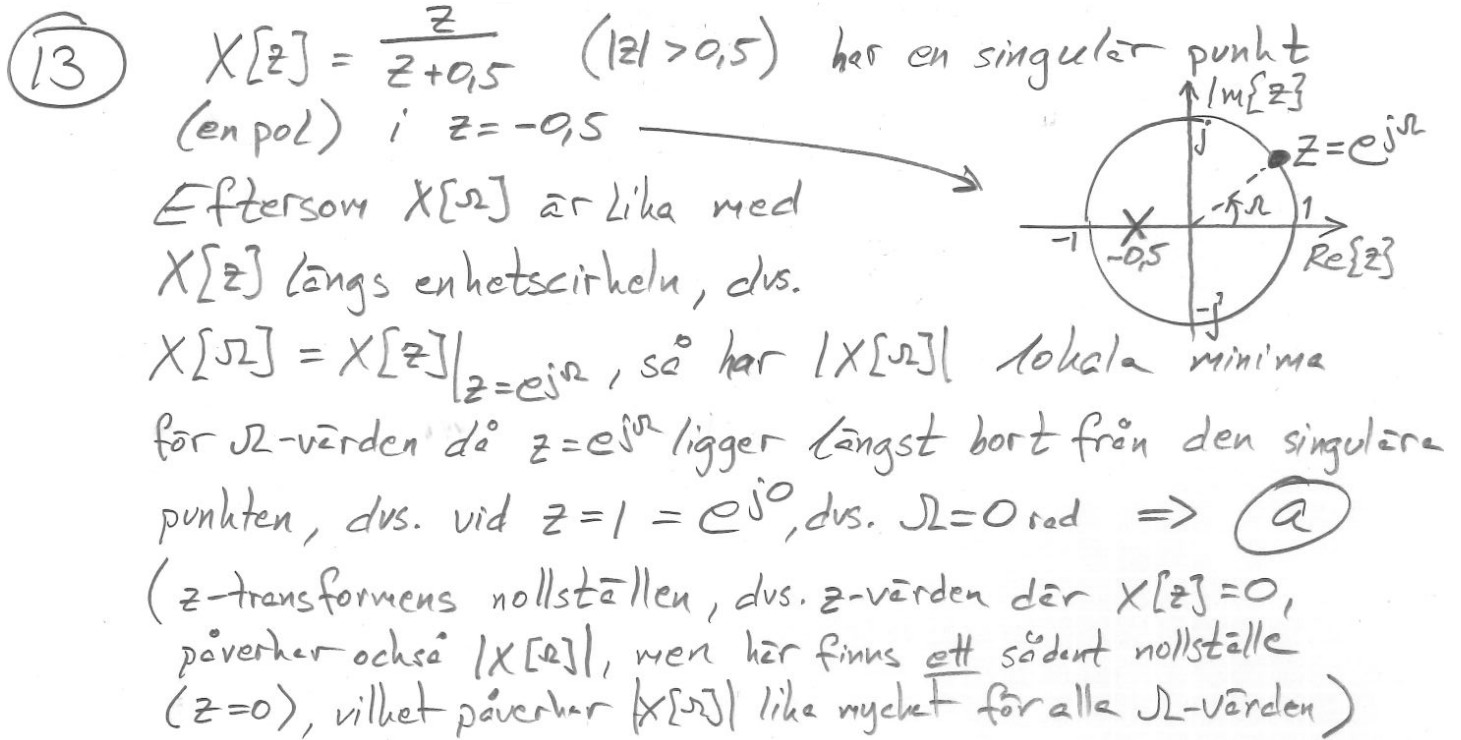 13 X[z] = z / (z+0,5) (|z| > 0,5) har en singulär punkt
(en pol) i z = -0,5
Im{z}
j
z = e^{jΩ}
Ω
1
-1
-0,5
Re{z}
-j
Eftersom X[Ω] är lika med
X[z] längs enhetscirkeln, dvs.
X[Ω] = X[z]|_{z=e^{jΩ}}, så har |X[Ω]| lokala minima
för Ω-värden då z=e^{jΩ} ligger längst bort från den singulära
punkten, dvs. vid z = 1 = e^{j0}, dvs. Ω = 0 rad => a
(z-transformens nollställen, dvs. z-värden där X[z]=0,
påverkar också |X[Ω]|, men här finns ett sådant nollställe
(z=0), vilket påverkar |X[Ω]| lika mycket för alla Ω-värden)